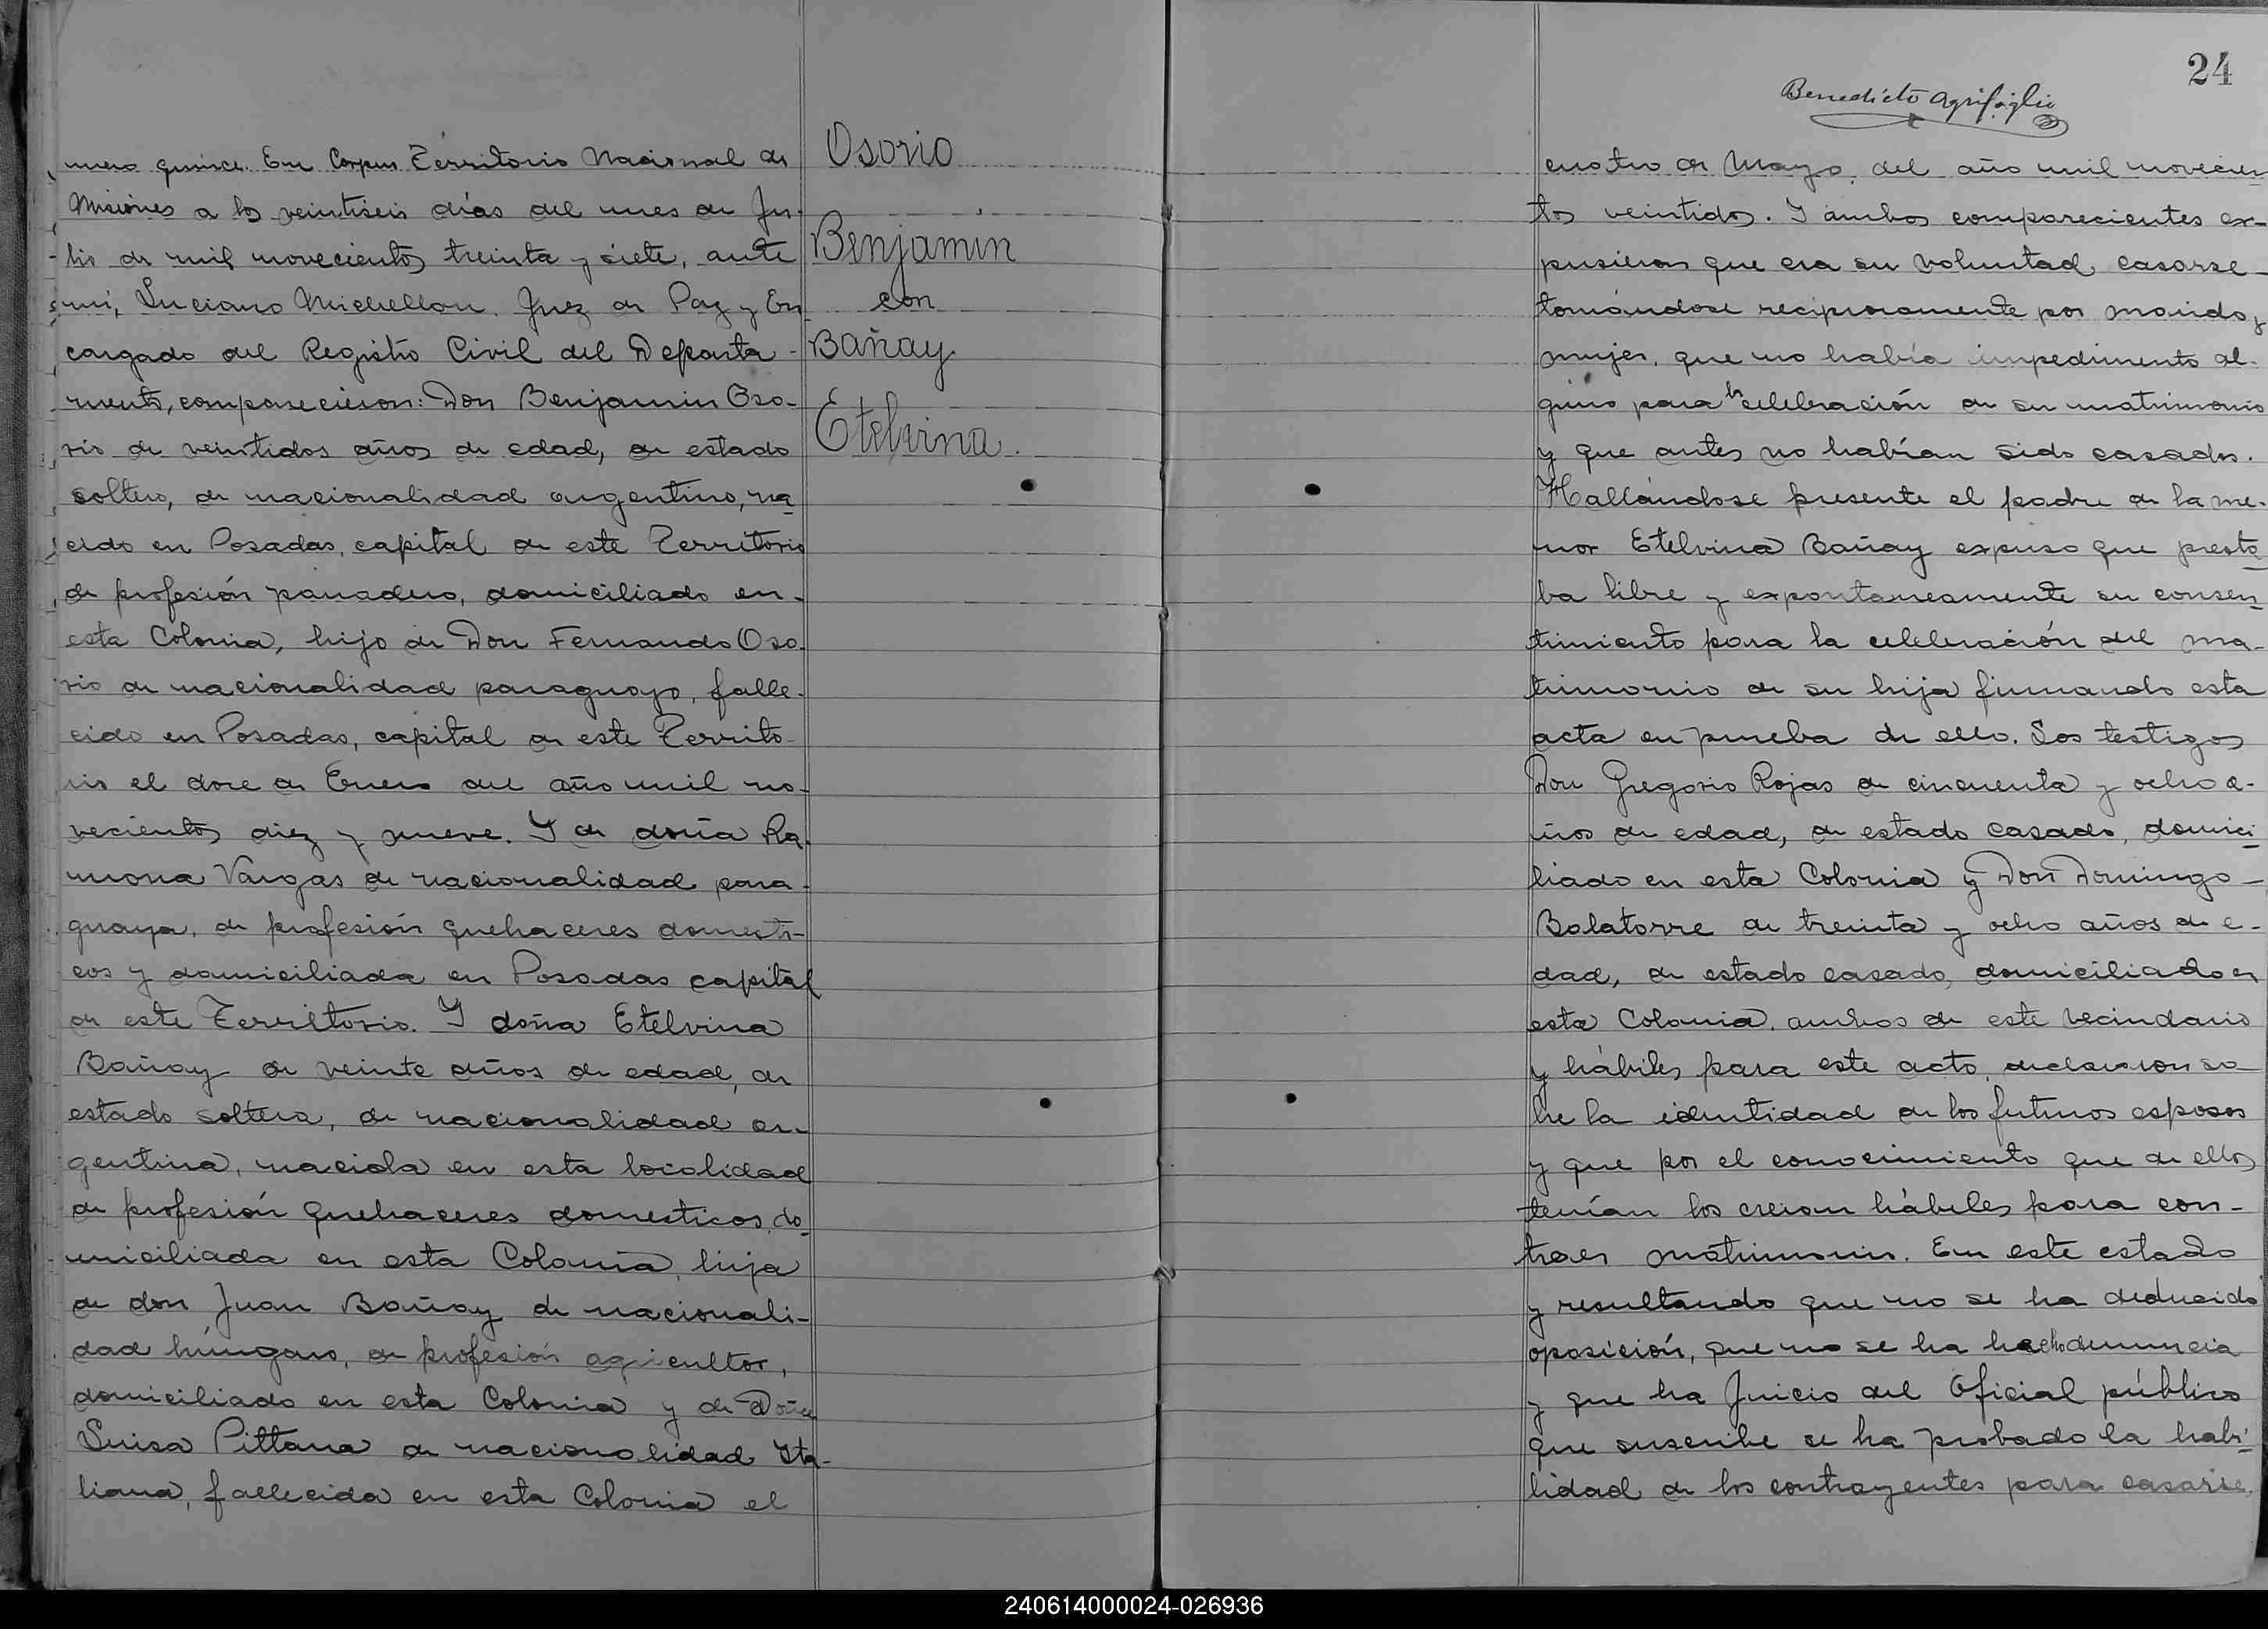 mero quince. En Corpus Territorio Nacional de
Misiones a los veintiseis días del mes de Ju-
lio de mil novecientos treinta y siete, ante
mi, Luciano Michellon. Juez de Paz y En
cargado del Registro Civil del Departa-
mento, comparecieron: Don Benjamin Oso-
rio de veintidos años de edad, de estado
soltero, de nacionalidad argentino, na
cido en Posadas, capital de este Territorio
de profesión panadero, domiciliado en-
esta Colonia, hijo de Don Fernando Oso-
rio de nacionalidad paraguayo, falle-
cido en Posadas, capital de este Territo-
rio el doce de Enero del año mil no-
vecientos diez y nueve. Y de doña Ra-
mona Vargas de nacionalidad para-
guaya, de profesión quehaceres domesti-
cos y domiciliada en Posadas capital
de este Territorio. Y doña Etelvina
Bañay de veinte años de edad, de
estado soltera, de nacionalidad ar-
gentina, nacida en esta localidad
de profesión quehaceres domesticos, do
miciliada en esta Colonia, hija
de don Juan Bañay de nacionali-
dad húngaro, de profesión agricultor,
domiciliado en esta Colonia y de Doña
Luisa Pittana de nacionalidad Ita-
liana, fallecida en esta Colonia el
Osorio
Benjamin
con
Bañay
Etelvina.
24
Benedicto Agrifoglio
cuatro de Mayo, del año mil novecien
tos veintidos. Y ambos comparecientes ex-
pusieron que era su voluntad casarse
tomándose reciprocamente por marido y
mujer, que no había impedimento al-
guno para la celebración de su matrimonio
y que antes no habían sido casados.
Hallándose presente el padre de la me-
nor Etelvina Bañay expuso que presta
ba libre y expontaneamente su consen
timiento para la celebración del ma-
trimonio de su hija firmando esta
acta en prueba de ello. Los testigos
Don Gregorio Rojas de cincuenta y ocho a-
ños de edad, de estado casado, domici
liado en esta Colonia y Don Domingo
Balatorre de treinta y ocho años de e-
dad, de estado casado, domiciliado en
esta Colonia, ambos de este vecindario
y hábiles para este acto, declararon so-
bre la identidad de los futuros esposos
y que por el conocimiento que de ellos
tenían los creian hábiles para con-
traer matrimonio. En este estado
y resultando que no se ha deducido
oposición, que no se ha hecho denuncia
y que ha Juicio del Oficial público
que suscribe se ha probado la habi
lidad de los contrayentes para casarse,
240614000024-026936